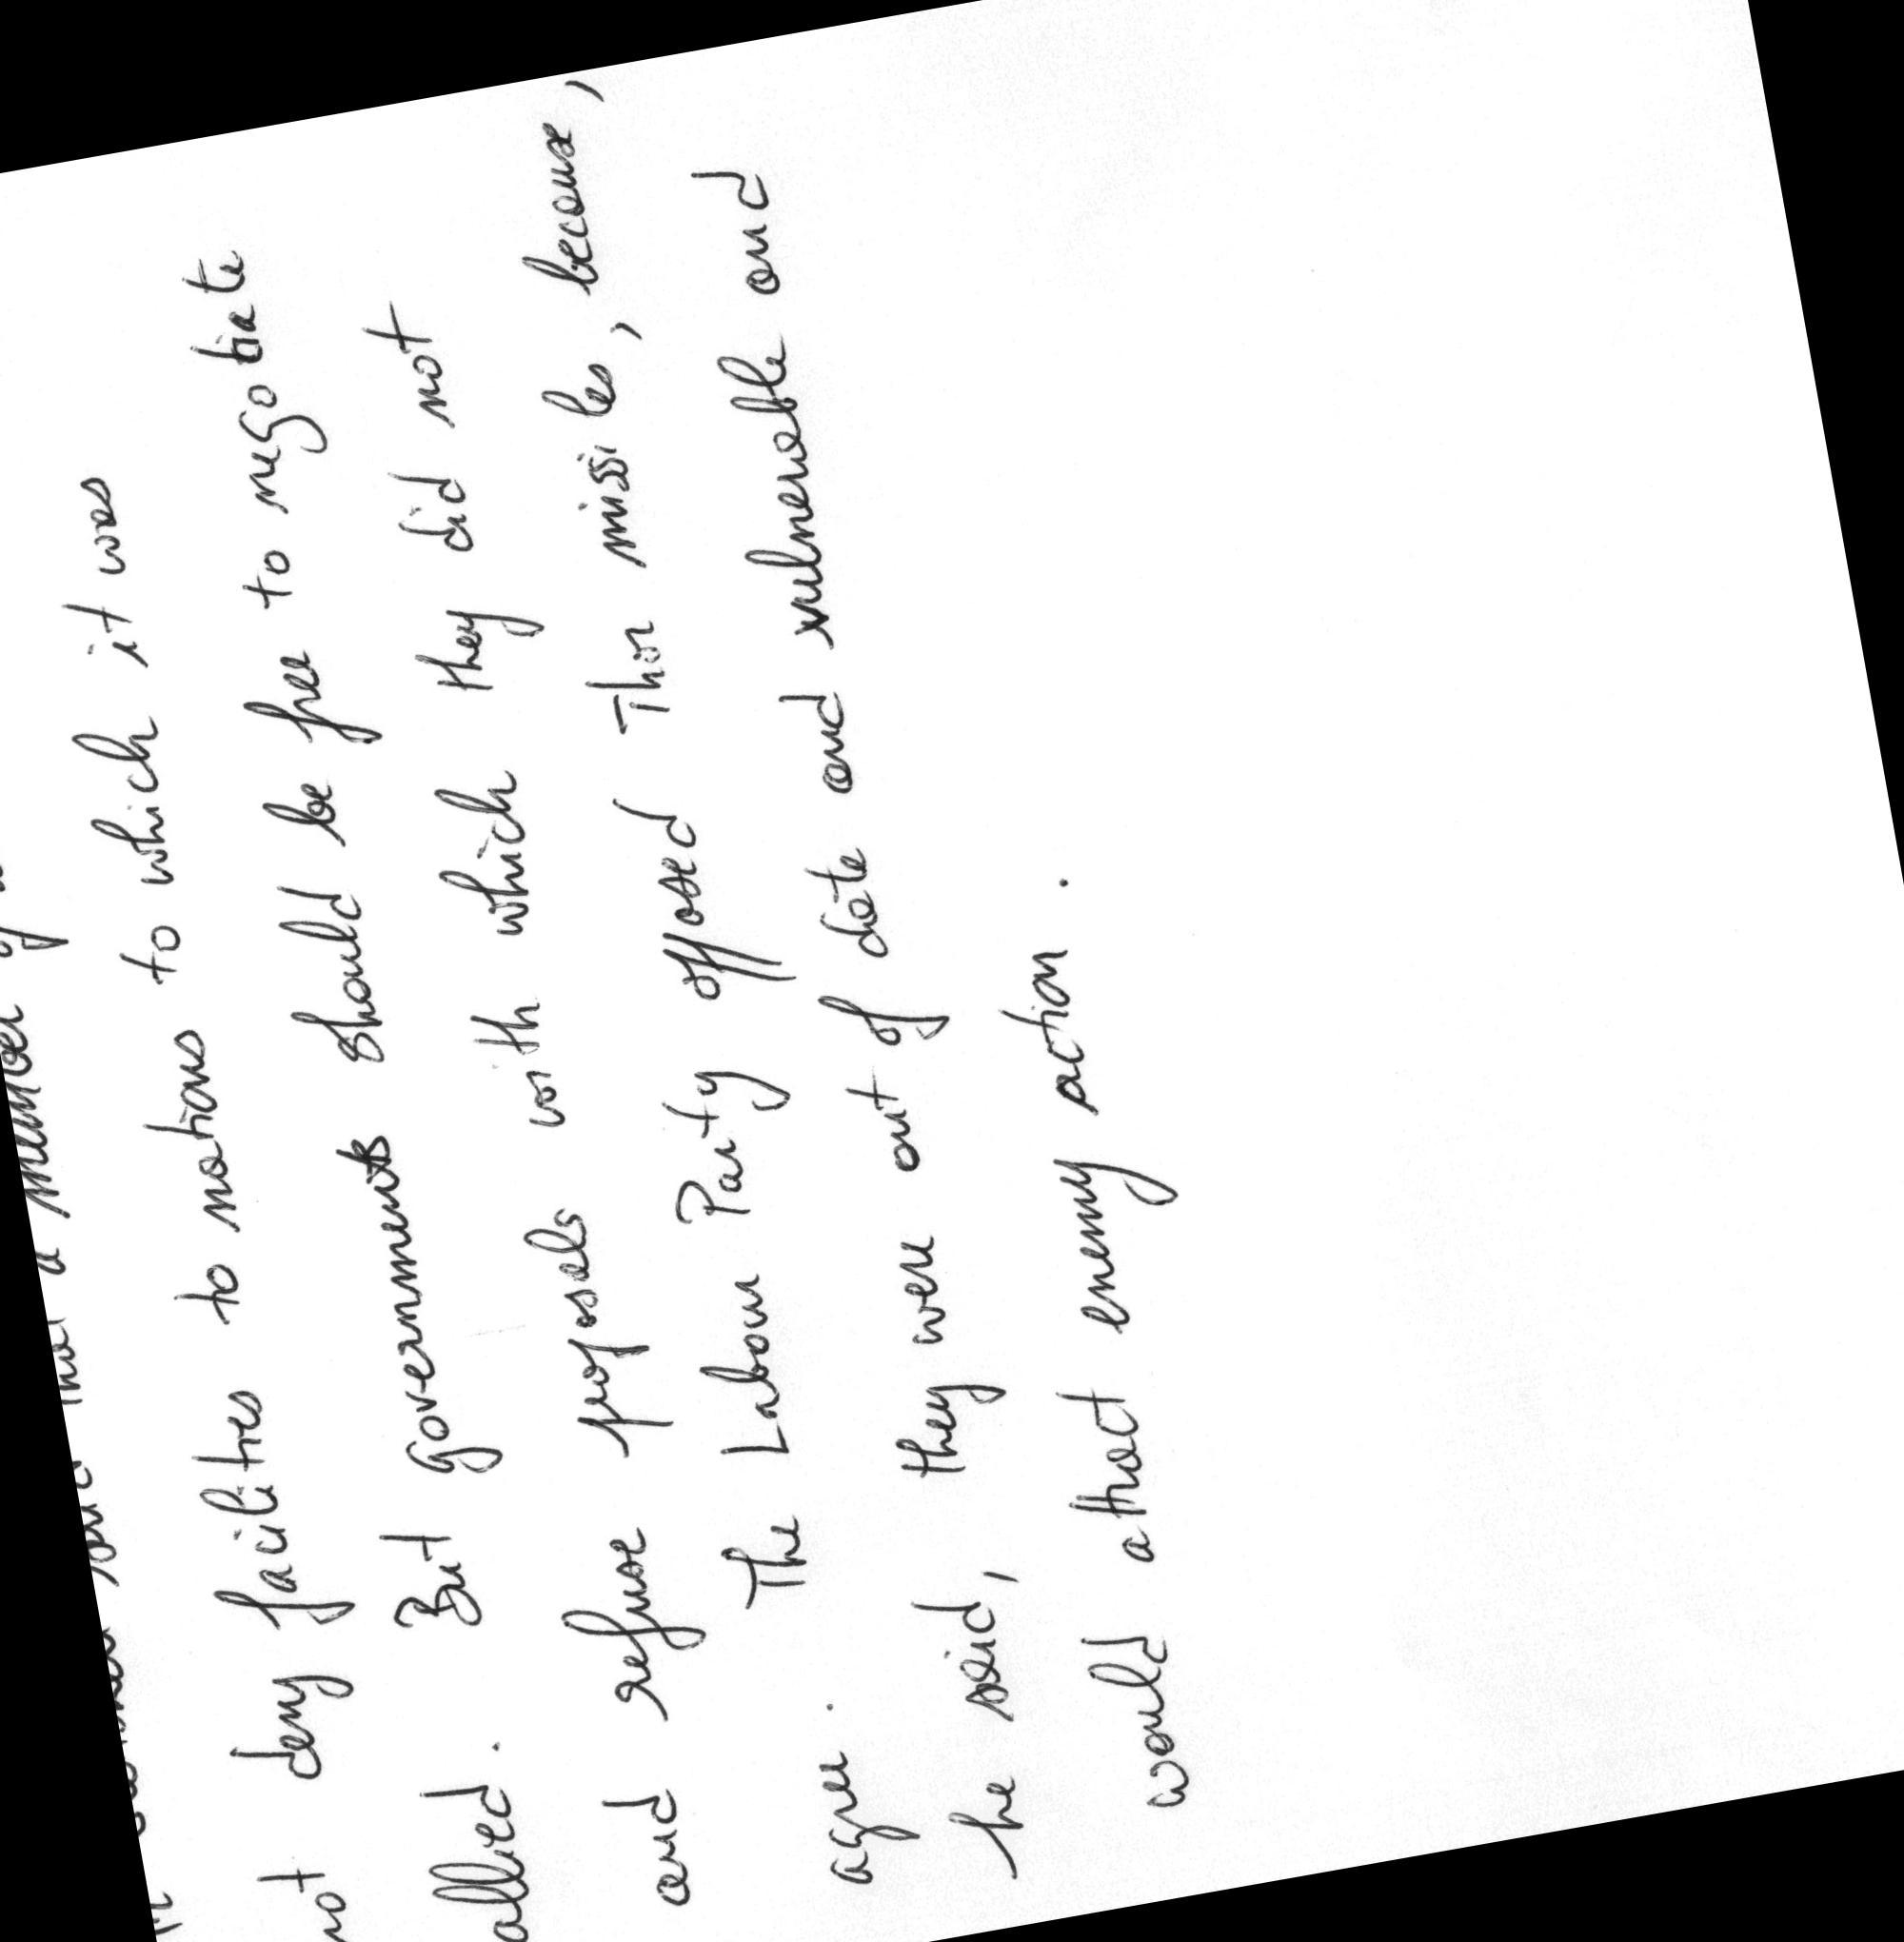 a member
not deny facilities to nations to which it was
allied. But governments should be free to negotiate
and refuse proposals with which they did not
agree. The Labour Party opposed Thor missiles, because,
he said, they were out of date and vulnerable and
would attract enemy action.